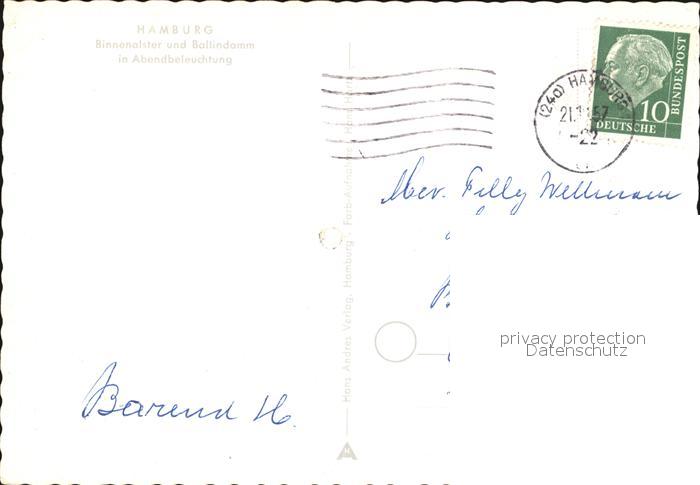 HAMBURG
Binnenalster und Ballindamm
in Abendbeleuchtung
(24a) HAMBURG
21.1 .57
-22
10
DEUTSCHE
BUNDESPOST
Mev. Filly Wellmann
privacy protection
Datenschutz
Barend H.
Hans Andres Verlag, Hamburg · Farb-Aufnahme: Hans Hartz